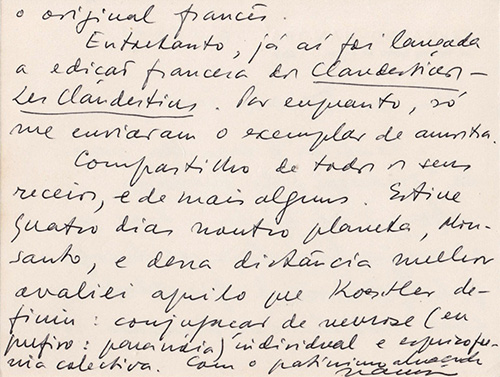 o original francês.
Entretanto, já aí foi lançada
a edição francesa dos Clandestinos –
Les Clandestins. Por enquanto, só
me enviaram o exemplar de amostra.
Compartilho de todos os seus
receios, e de mais alguns. Estive
quatro dias noutro planeta, Mon-
santo, e dessa distância melhor
avaliei aquilo que Koestler de-
finiu: conjugação de neurose (eu
prefiro: paranóia) individual e esquizofre-
nia colectiva. Com o